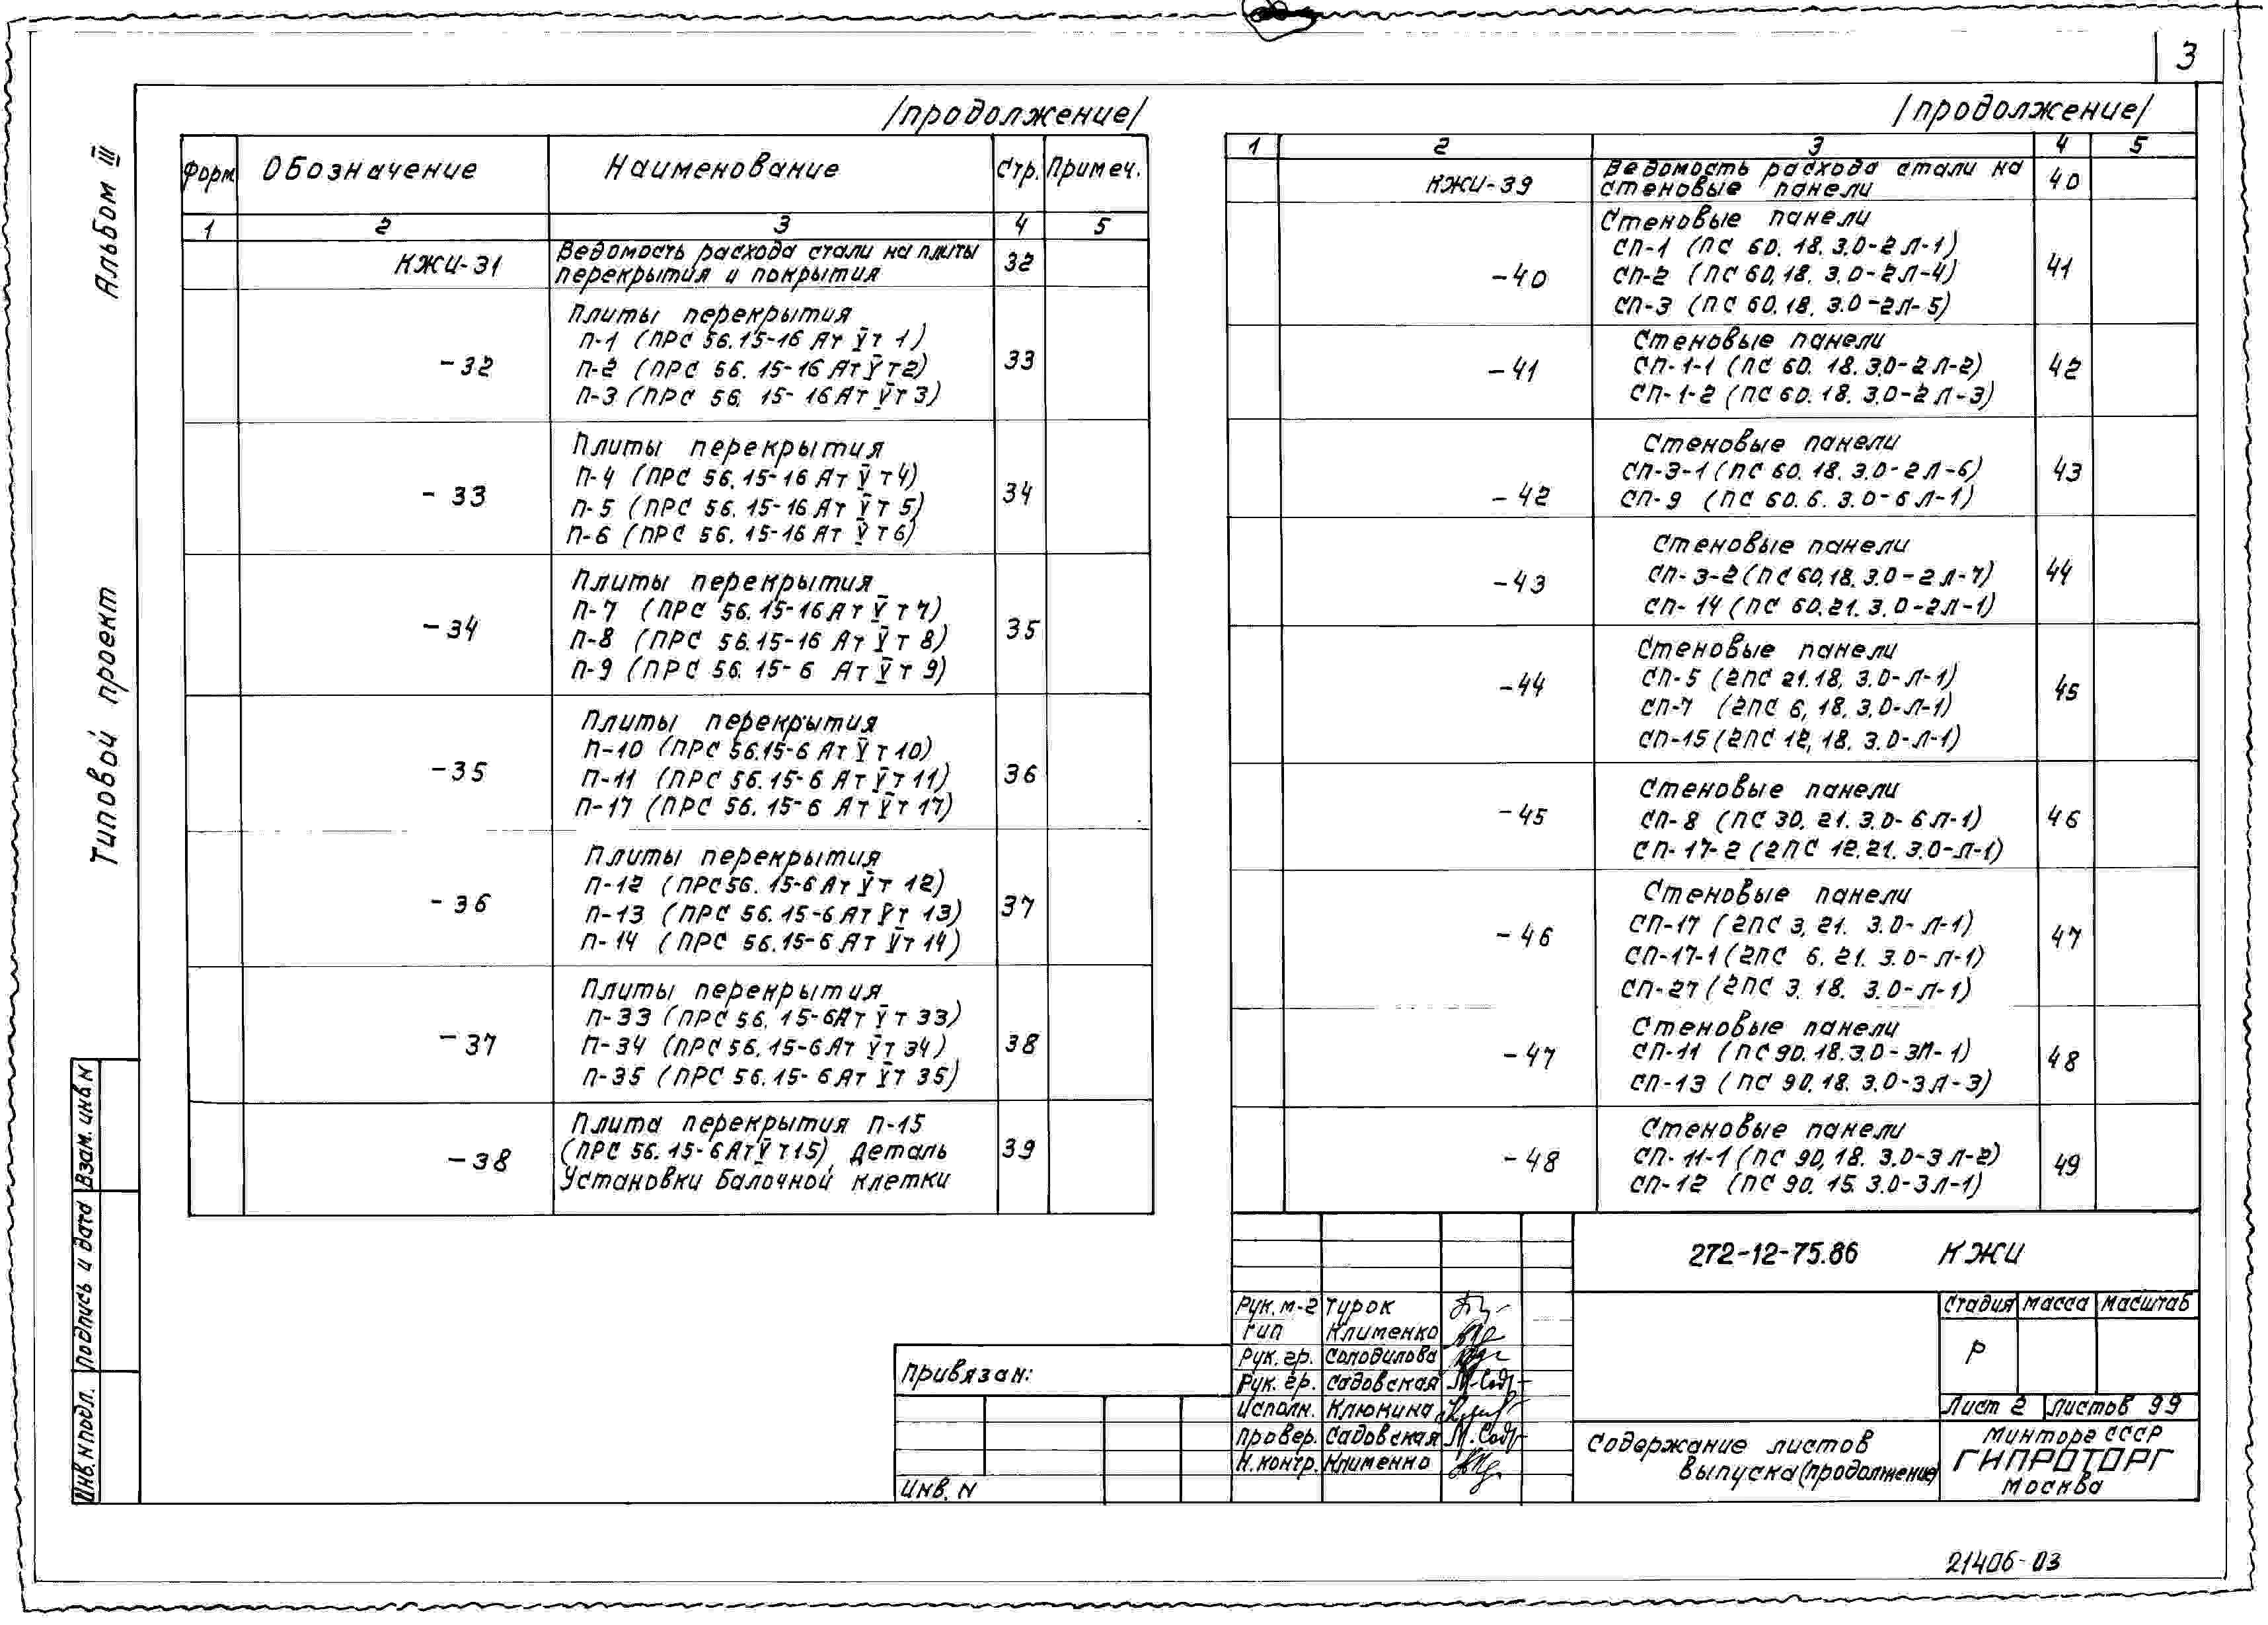 3
Альбом III
Типовой проект
/продолжение/
Форм. Обозначение Наименование Стр. Примеч.
1 2 3 4 5
КЖИ-31 Ведомость расхода стали на плиты 32
перекрытия и покрытия
Плиты перекрытия
П-1 (ПРС 56.15-16 Ат V т 1)
-32 П-2 (ПРС 56.15-16 Ат V т 2) 33
П-3 (ПРС 56.15-16 Ат V т 3)
Плиты перекрытия
П-4 (ПРС 56.15-16 Ат V т 4)
-33 П-5 (ПРС 56.15-16 Ат V т 5) 34
П-6 (ПРС 56.15-16 Ат V т 6)
Плиты перекрытия
П-7 (ПРС 56.15-16 Ат V т 7)
-34 П-8 (ПРС 56.15-16 Ат V т 8) 35
П-9 (ПРС 56.15-6 Ат V т 9)
Плиты перекрытия
П-10 (ПРС 56.15-6 Ат V т 10)
-35 П-11 (ПРС 56.15-6 Ат V т 11) 36
П-17 (ПРС 56.15-6 Ат V т 17)
Плиты перекрытия
П-12 (ПРС 56.15-6 Ат V т 12)
-36 П-13 (ПРС 56.15-6 Ат V т 13) 37
П-14 (ПРС 56.15-6 Ат V т 14)
Плиты перекрытия
П-33 (ПРС 56.15-6 Ат V т 33)
-37 П-34 (ПРС 56.15-6 Ат V т 34) 38
П-35 (ПРС 56.15-6 Ат V т 35)
Плита перекрытия П-15
-38 (ПРС 56.15-6 Ат V т 15), Деталь 39
установки балочной клетки
/продолжение/
1 2 3 4 5
КЖИ-39 Ведомость расхода стали на 40
стеновые панели
Стеновые панели
СП-1 (ПС 60.18.3.0-2Л-1)
-40 СП-2 (ПС 60.18.3.0-2Л-4) 41
СП-3 (ПС 60.18.3.0-2Л-5)
Стеновые панели
-41 СП-1-1 (ПС 60.18.3.0-2Л-2) 42
СП-1-2 (ПС 60.18.3.0-2Л-3)
Стеновые панели
СП-3-1 (ПС 60.18.3.0-2Л-6) 43
-42 СП-9 (ПС 60.6.3.0-6Л-1)
Стеновые панели
-43 СП-3-2 (ПС 60.18.3.0-2Л-7) 44
СП-14 (ПС 60.21.3.0-2Л-1)
Стеновые панели
СП-5 (2ПС 21.18.3.0-Л-1)
-44 СП-7 (2ПС 6.18.3.0-Л-1) 45
СП-15 (2ПС 12.18.3.0-Л-1)
Стеновые панели
-45 СП-8 (ПС 30.21.3.0-6Л-1) 46
СП-17-2 (2ПС 12.21.3.0-Л-1)
Стеновые панели
СП-17 (2ПС 3.21.3.0-Л-1)
-46 СП-17-1 (2ПС 6.21.3.0-Л-1) 47
СП-27 (2ПС 3.18.3.0-Л-1)
Стеновые панели
-47 СП-11 (ПС 90.18.3.0-3Л-1) 48
СП-13 (ПС 90.18.3.0-3Л-3)
Стеновые панели
-48 СП-11-1 (ПС 90.18.3.0-3Л-2) 49
СП-12 (ПС 90.15.3.0-3Л-1)
272-12-75.86 КЖИ
Рук. м-2 Турок
Гип Клименко
Рук. гр. Солодилова
Рук. гр. Садовская М.Сад
Исполн. Клюкина
Провер. Садовская М.Сад
Н.контр. Клименко
Стадия Масса Масштаб
Р
Лист 2 Листов 99
Содержание листов
выпуска (продолжение)
Минторг СССР
ГИПРОТОРГ
Москва
Привязан:
Инв. N
Взам. инв N
Подпись и дата
Инв. N подл.
21406-03